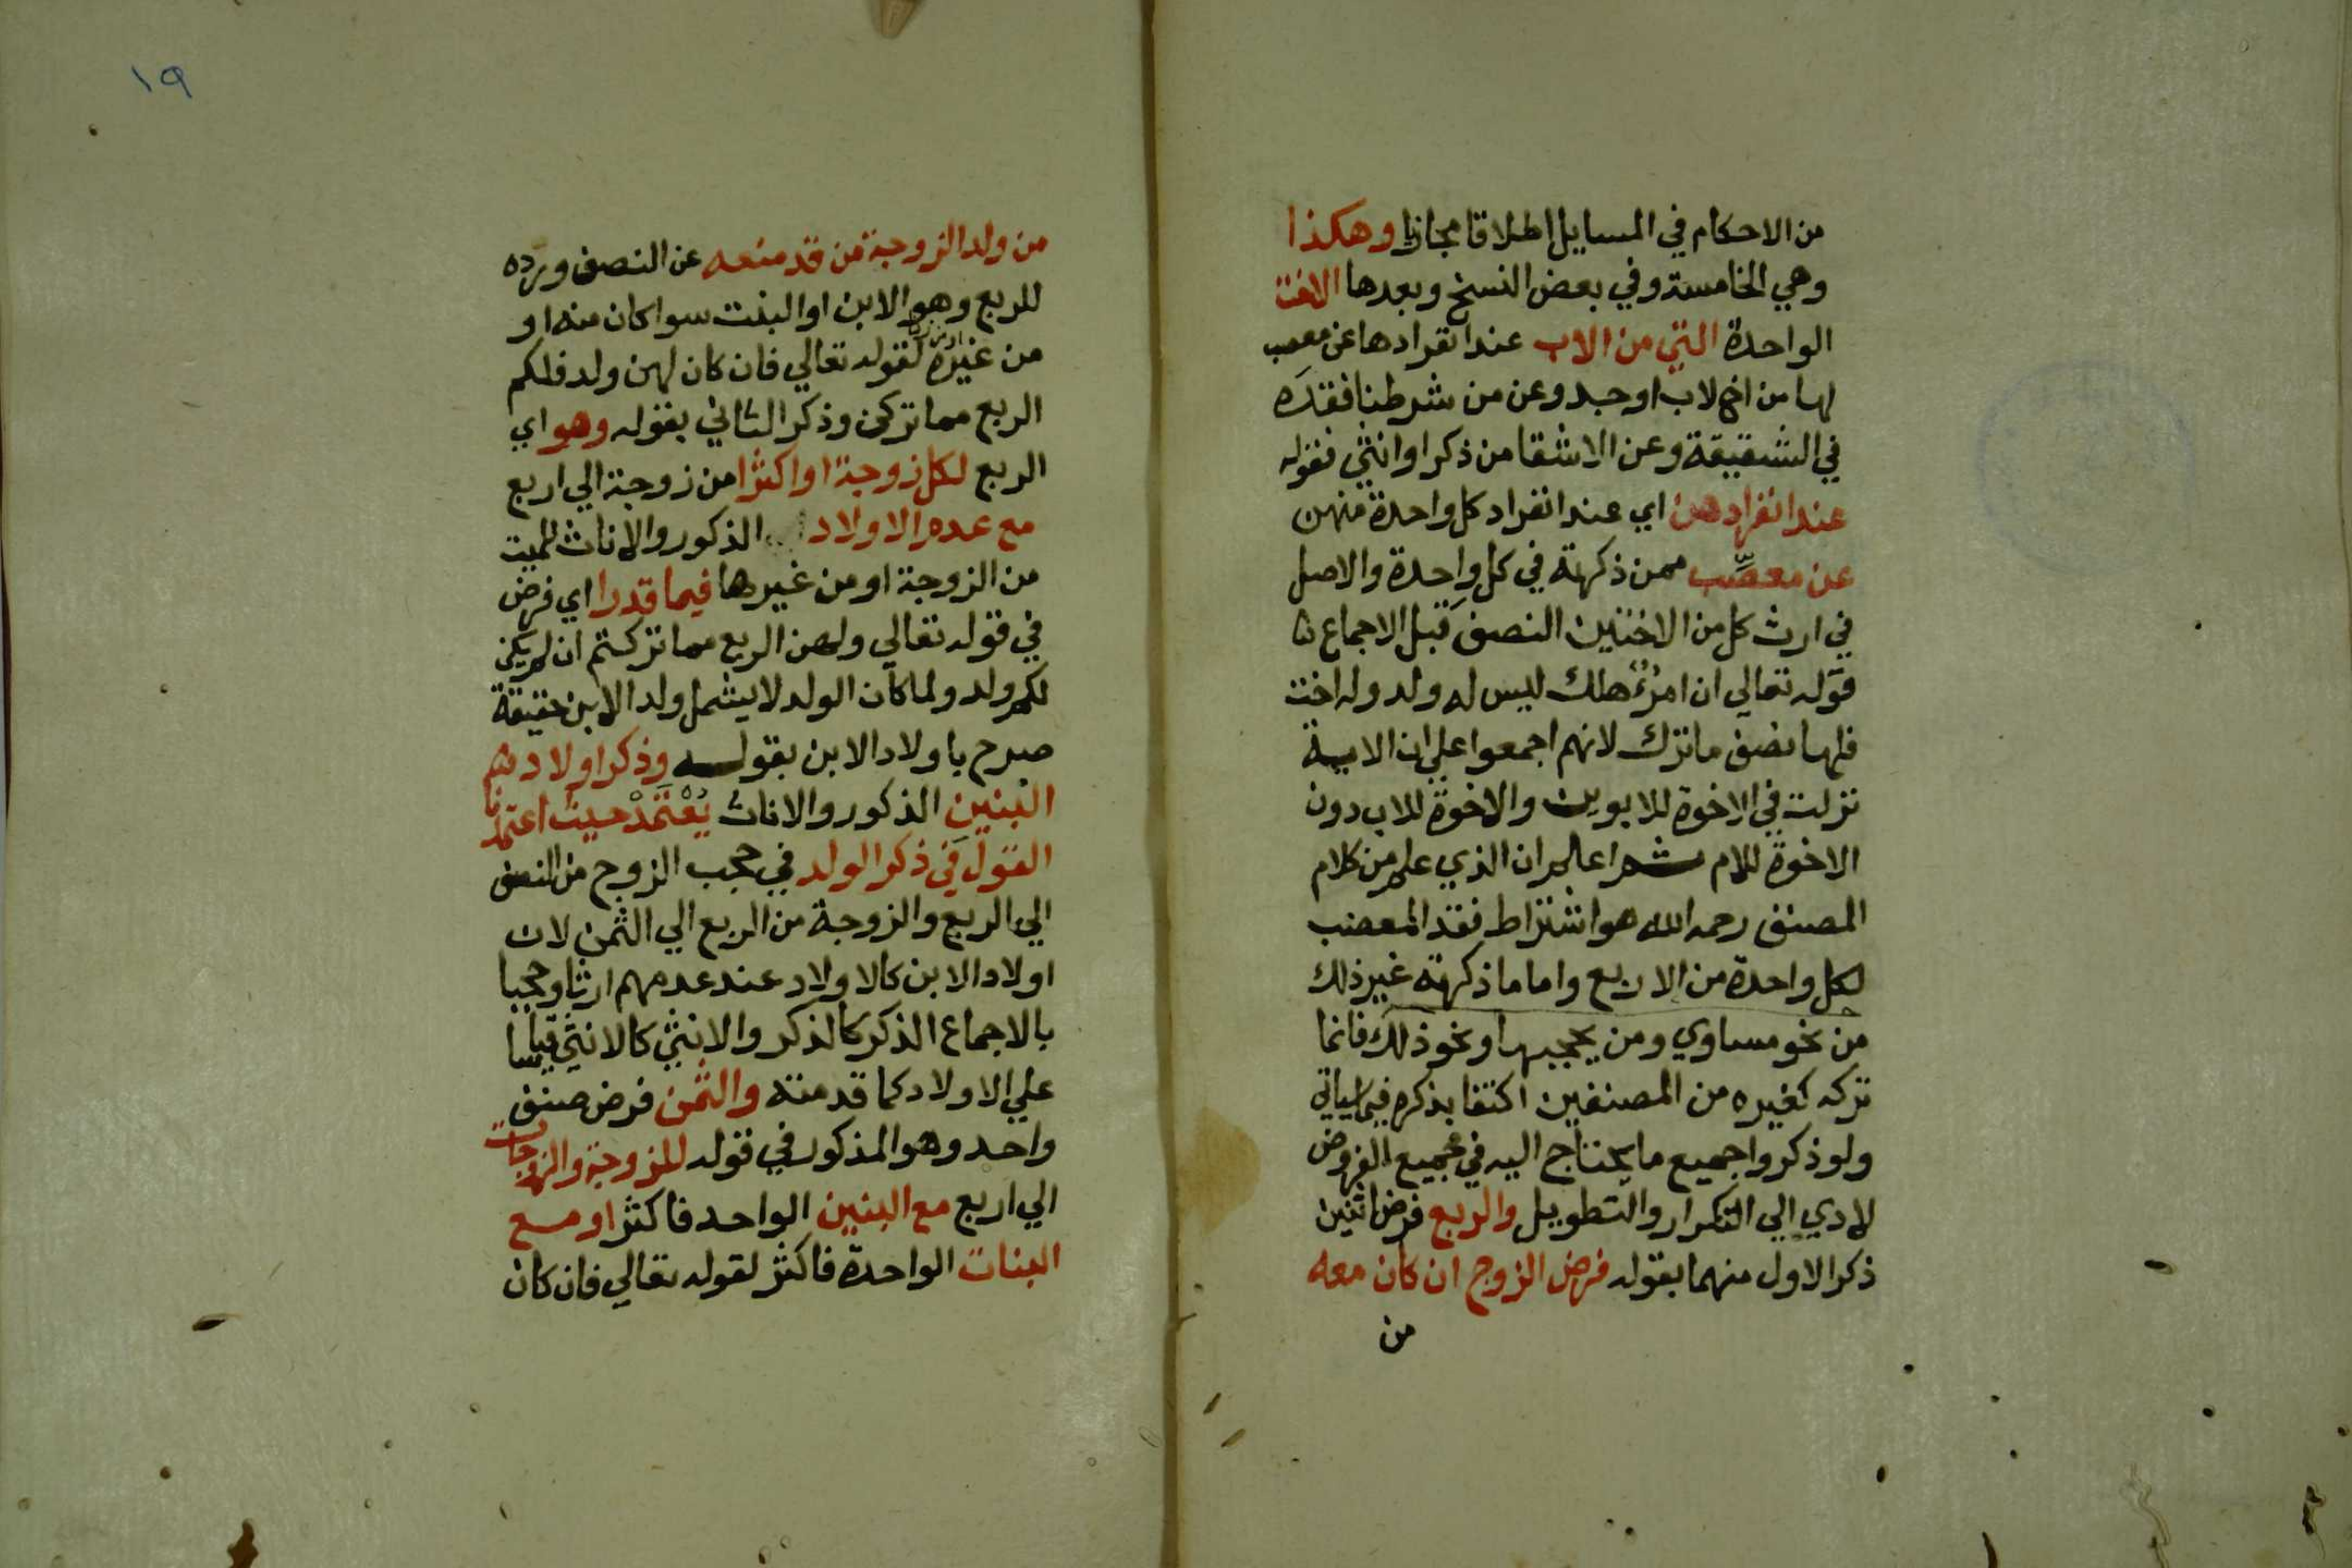 من الاحكام في المسايل اطلاقا مجازيا وهكذا
وهي الخامسة وفي بعض النسخ وبعدها الاخت
الواحدة التي من الاب عند انفرادها عن معصب
لها من اخ لاب او جد وعن من شرطنا فقده
في الشقيقة وعن الاشقا من ذكر او انثي فقوله
عند انفرادهن اي عند انفراد كل واحدة منهن
عن معصّب ممن ذكرته في كل واحدة والاصل
في ارث كل من الاختين النصف قبل الاجماع
قوله تعالي ان امرؤ هلك ليس له ولد وله اخت
فلها نصف ما ترك لانهم اجمعوا علي ان الاية
نزلت في الاخوة للابوين والاخوة للاب دون
الاخوة للام ثم اعلم ان الذي علم من كلام
المصنف رحمه الله هو اشتراط فقد المعصب
لكل واحدة من الاربع واما ما ذكرته غير ذلك
من نحو مساوي ومن يحجبها او نحو ذلك فانما
تركه كغيره من المصنفين اكتفا بذكره فيما سياتي
ولو ذكروا جميع ما يحتاج اليه في جميع الفروض
لادي الي التكرار والتطويل والربع فرض اثنين
ذكر الاول منهما بقوله فرض الزوج ان كان معه
من
١٩
من ولد الزوجة من قد منعه عن النصف ورده
للربع وهو الابن او البنت سوا كان منه او
من غيره لقوله تعالي فان كان لهن ولد فلكم
الربع مما تركن وذكر الثاني بقوله وهو اي
الربع لكل زوجة او اكثرا من زوجة الي اربع
مع عدم الاولاد الذكور والاناث للميت
من الزوجة او من غيرها فيما قدرا اي فرض
في قوله تعالي ولهن الربع مما تركتم ان لم يكن
لكم ولد ولما كان الولد لا يشمل ولد الابن حقيقة
صرح باولاد الابن بقوله وذكر اولاد
البنين الذكور والاناث يُعْتَمَدْ حيث اعتمدنا
القول في ذكر الولد في حجب الزوج من النصف
الي الربع والزوجة من الربع الي الثمن لان
اولاد الابن كالاولاد عند عدمهم ارثا وحجبا
بالاجماع الذكر كالذكر والانثي كالانثي قياسا
علي الاولاد كما قدمته والثمن فرض صنف
واحد وهو المذكور في قوله للزوجة والزوجات
الي اربع مع البنين الواحد فاكثر او مع
البنات الواحدة فاكثر لقوله تعالي فان كان